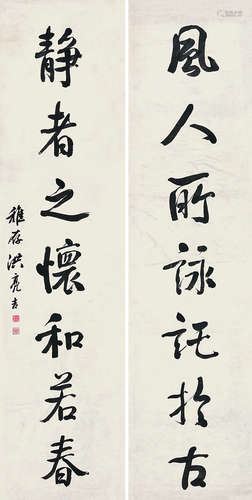 風人所詠託於古
靜者之懷和若春
稚存洪亮吉